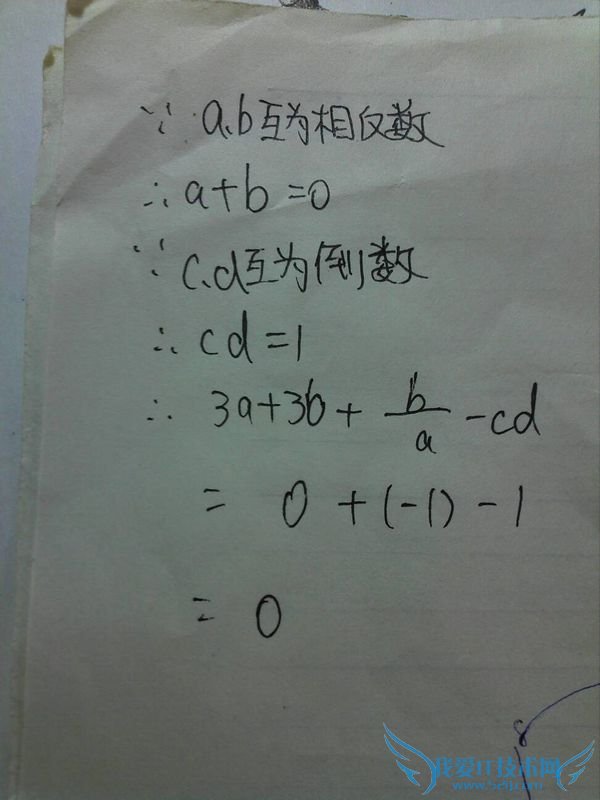 ∵ a.b互为相反数
∴ a+b=0
∵ c.d互为倒数
∴ cd=1
∴ 3a+3b+b/a-cd
= 0+(-1)-1
= 0
8
我爱IT技术网
www.52ij.com